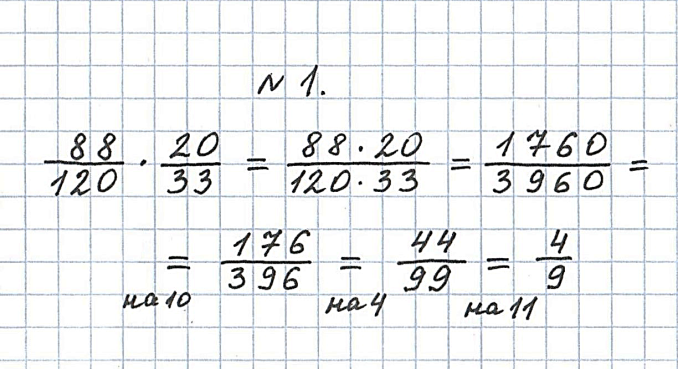 № 1.
88/120 · 20/33 = 88 · 20/120 · 33 = 1760/3960 =
= 176/396 = 44/99 = 4/9
на 10 на 4 на 11